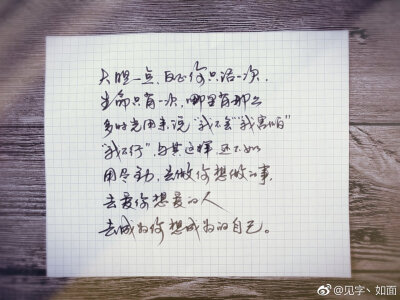 大胆一点，反正你只活一次，
生命只有一次，哪里有那么
多时光用来说“我不会”“我害怕”
“我不行”，与其这样还不如
用尽全力，去做你想做的事，
去爱你想爱的人
去成为你想成为的自己。
@见字丶如面